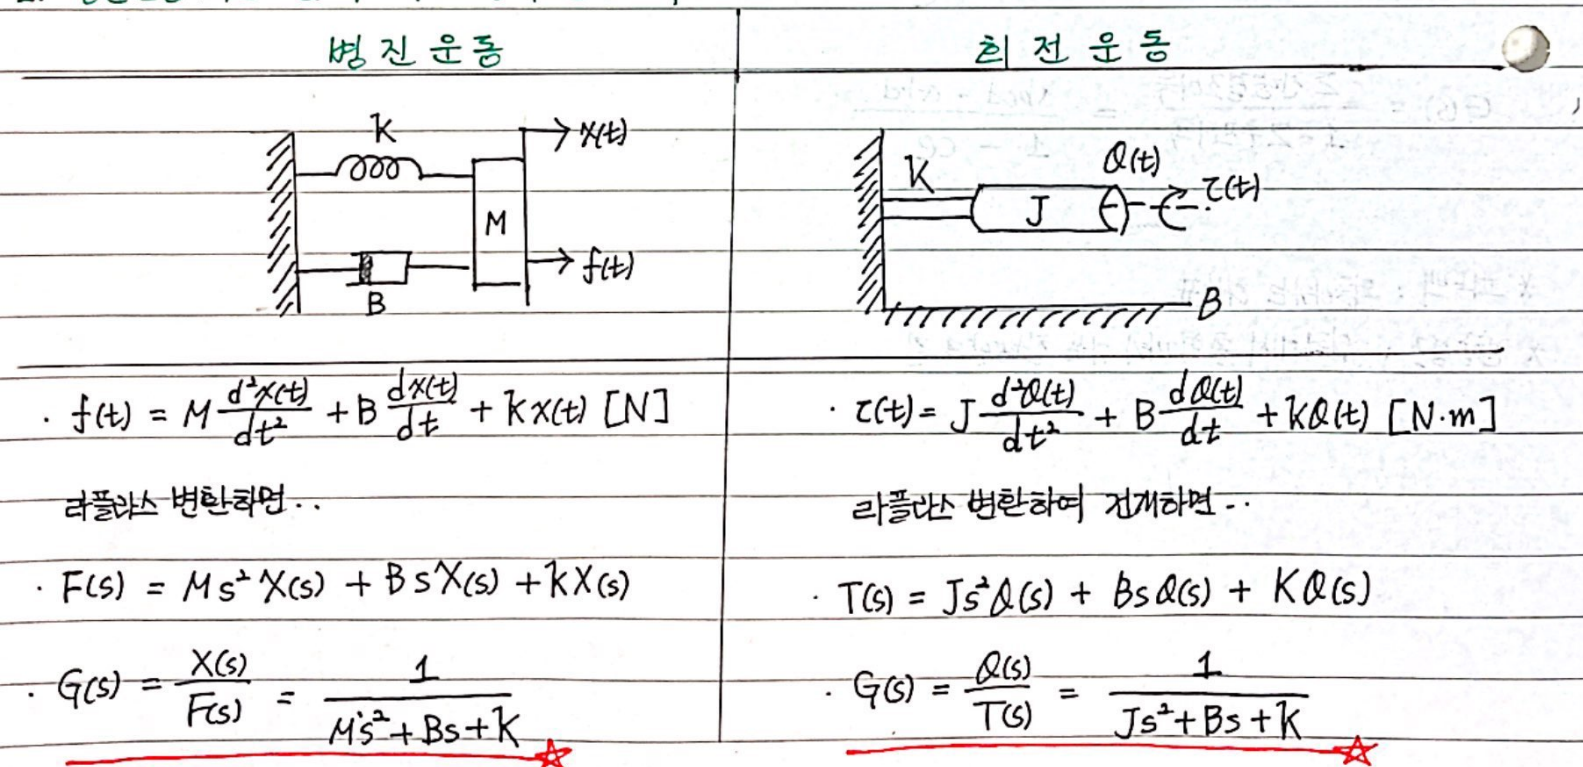 병진운동
회전운동
K
x(t)
M
f(t)
B
K
Q(t)
J
τ(t)
B
· f(t) = M d²x(t)/dt² + B dx(t)/dt + Kx(t) [N]
라플라스 변환하면..
· F(s) = Ms²X(s) + BsX(s) + KX(s)
· G(s) = X(s)/F(s) = 1/(Ms² + Bs + K)
· τ(t) = J d²Q(t)/dt² + B dQ(t)/dt + KQ(t) [N·m]
라플라스 변환하여 전개하면..
· T(s) = Js²Q(s) + BsQ(s) + KQ(s)
· G(s) = Q(s)/T(s) = 1/(Js² + Bs + K)